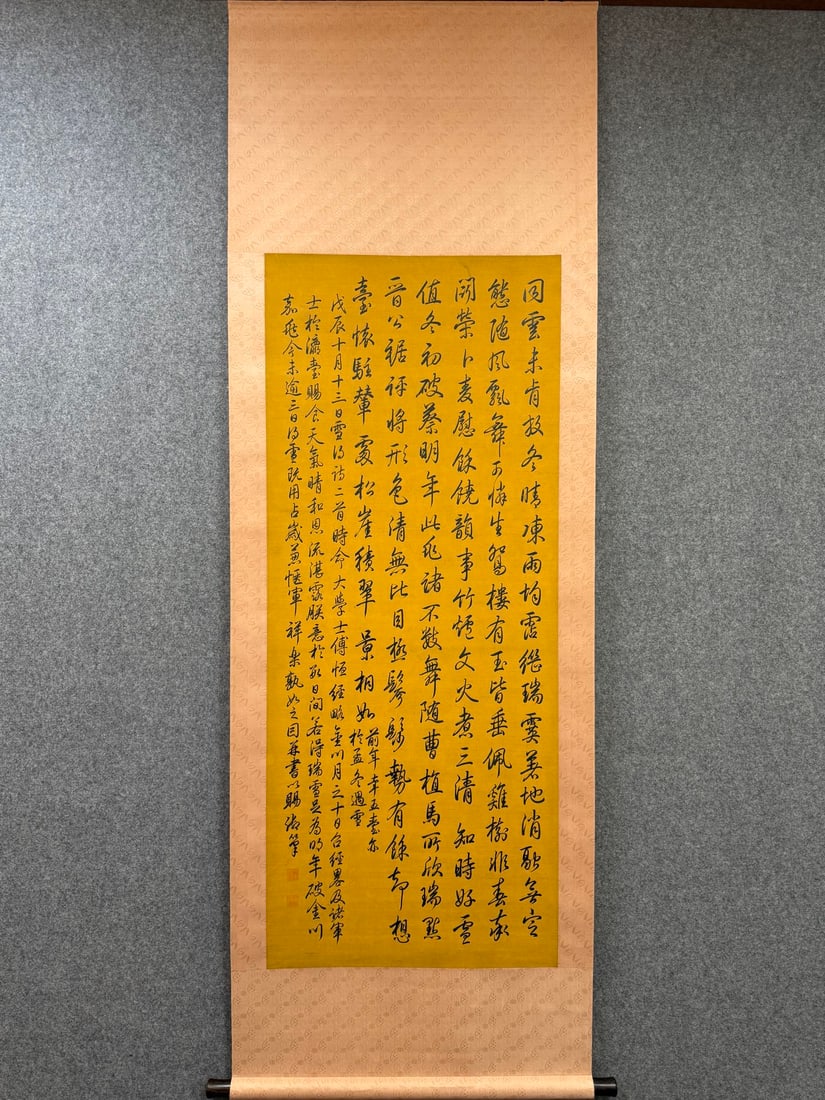 同雲未肯放冬晴凍雨均霑繼瑞霙著地消融無定
態隨風飄舞可憐生鴛樓有玉皆垂佩雞樹非春奈
閙榮卜麦慰餘饒韻事竹爐文火煮三清 知時好雪
值冬初破蔡明年此兆諸不數舞随曹植馬所欣瑞點
晉公裾評將形色清無比目極鬖髿勢有餘却想
臺懷駐輦處松崖積翠景相如
前年幸五臺亦
於孟冬遇雪
戊辰十月十三日雪得詩二首時命大學士傅恒經略金川月之十日召經畧及諸軍
士於瀛臺賜食天氣晴和恩流湛露朕意於數日間若得瑞雪是為明年破金川
嘉兆今未逾三日得雪既用占歲兼愜軍祥樂孰如之因並書以賜御筆